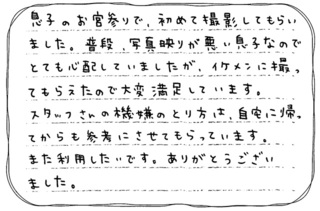 息子のお宮参りで、初めて撮影してもらい
ました。普段、写真映りが悪い息子なので
とても心配していましたが、イケメンに撮っ
てもらえたので大変満足しています。
スタッフさんの機嫌のとり方は、自宅に帰っ
てからも参考にさせてもらっています。
また利用したいです。ありがとうござい
ました。